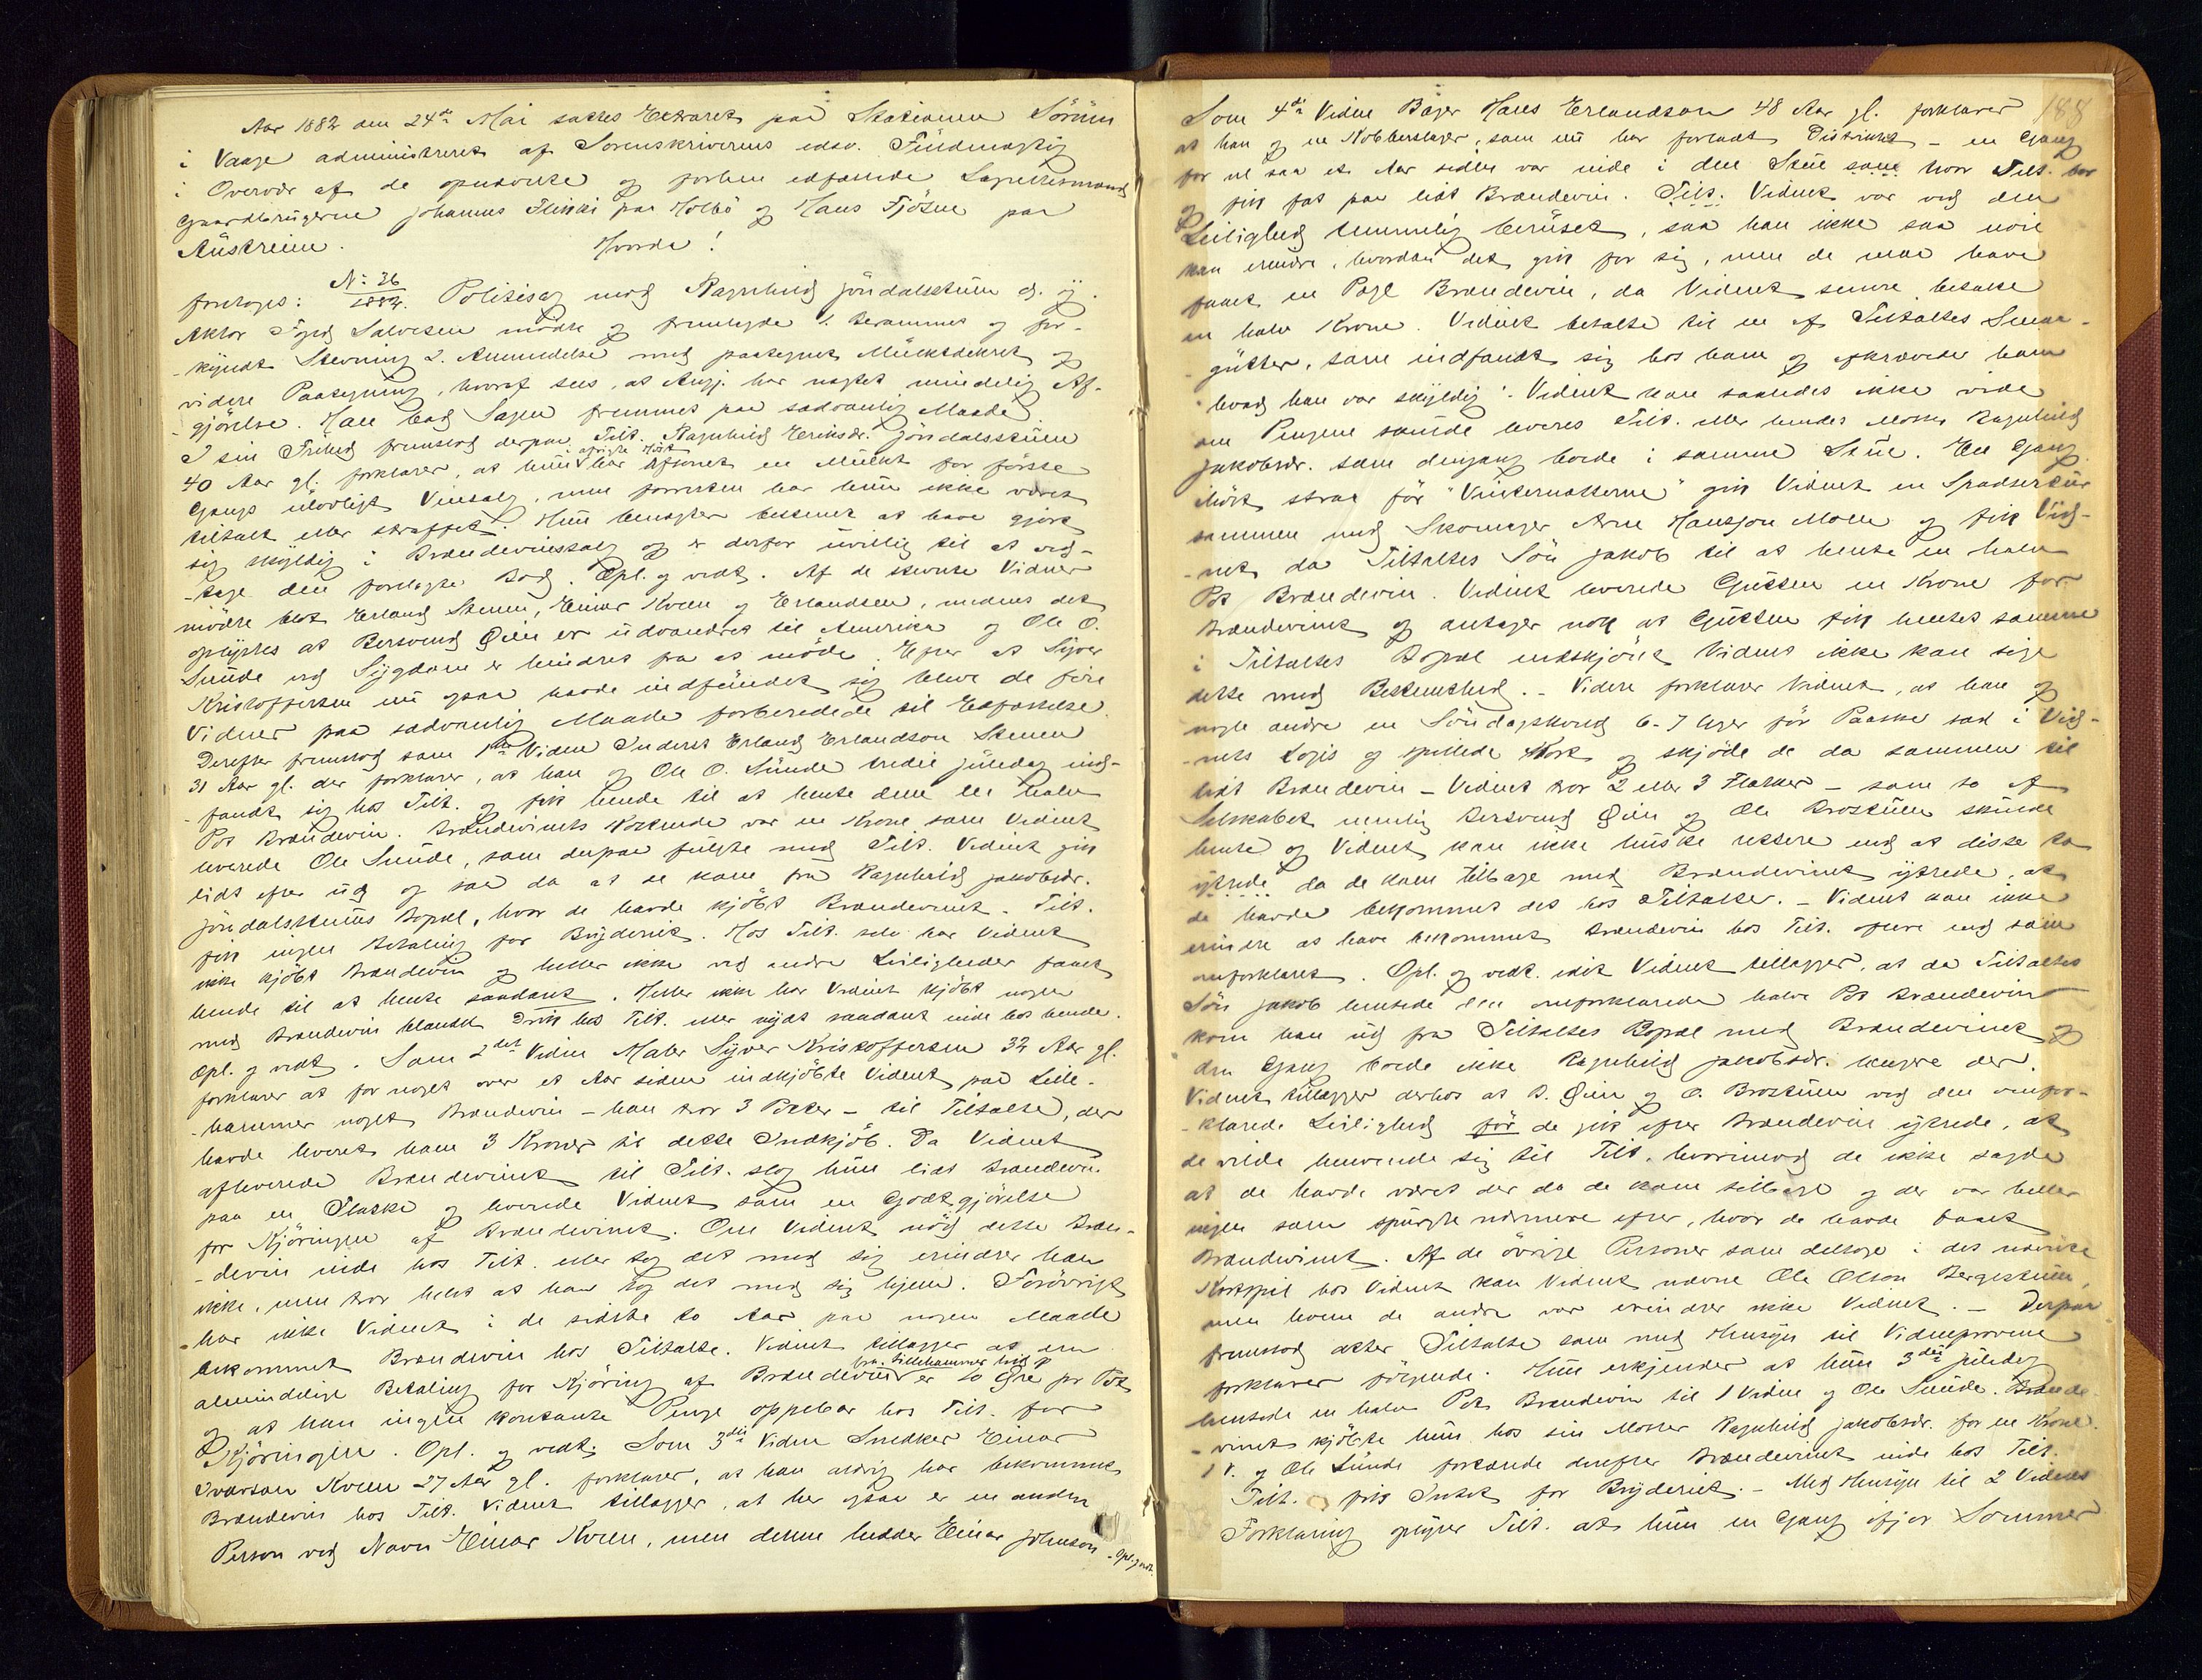 Aar 1882 den 24de Mai sattes Extraret paa Skatieren Sörum
i Vaage administreret af Sorenskriverens edsv. Fuldmægtig
i Overvær af de opnævnte og forhen edfæstede Lagrettesmænd
Gaardbrugerne Johannes Flinki paa Holbö og Hans Fjösne paa
Austreim. Hvorda!
foretoges: No 36/1882. Politisag mod Ragnhild Jöndalsstuen og ....
Aktor Foged Salvesen mödte og fremlagde 1. Berammet og for-
-kyndt Stevning 2. Anmeldelse med paategnet Mulktdekret og
videre Paategning, hvoraf sees, at Angj. har nægtet mindelig Af-
-gjörelse. Han bad Sagen fremmet paa sædvanlig Maade.
I sin Frihed fremstod derpaa Tilt. Ragnhild Eriksdr. Jöndalsstuen
40 Aar gl. forklarer, at hun i afvigte Höst har afsonet en Mulkt for förste
Gangs ulovligt Vinsalg, men forresten har hun ikke været
tiltalt eller straffet. Hun benægter bestemt at have gjort
sig skyldig i Brændevinssalg og er derfor uvillig til at ved-
-tage den forelagte Bod. Opl. og vedt. Af de stevnte Vidner
mödte blot Erland Stenen, Einar Kveen og Erlandsen, medens det
oplystes at Bersvend Øien er udvandret til Amerika og Ole O.
Sunde ved Sygdom er hindret fra at möde. Efter at Syver
Kristoffersen nu ogsaa havde indfundet sig blev de fire
Vidner paa sædvanlig Maade forberedede til Edfæstelse.
Derefter fremstod som 1ste Vidne Inderst Erland Erlandson Stenen
31 Aar gl. der forklarer, at han og Ole O. Sunde tredie Juledag ind-
-fandt sig hos Tilt. og fik hende til at hente dem en halv
Pot Brændevin. Brændevinets Kostende var en Krone som Vidnet
leverede Ole Sunde, som derpaa fulgte med Tilt. Vidnet gik
lidt efter ud og saa da at de kom fra Ragnhild Jakobsdr.
Jöndalsstuens Bopæl, hvor de havde kjöbt Brændevinet. Tilt.
fik ingen Betaling for Bryderiet. Hos Tilt. selv har Vidnet
ikke kjöbt Brændevin og heller ikke ved andre Leiligheder faaet
hende til at hente saadant. Heller ikke har Vidnet kjöbt nogen
med Brændevin blandet Drik hos Tilt. eller nydt saadant inde hos hende.
Opl. og vedt. Som 2det Vidne Maler Syver Kristoffersen 32 Aar gl.
forklarer at for noget over et Aar siden indkjöbte Vidnet paa Lille-
-hammer noget Brændevin – han tror 3 Potter – til Tiltalte, der
havde leveret ham 3 Kroner til dette Indkjöb. Da Vidnet
afleverede Brændevinet til Tilt. slog hun lidt Brændevin
paa en Flaske og leverede Vidnet som en Godtgjörelse
for Kjöringen af Brændevinet. Om Vidnet nöd dette Bræn-
-devin inde hos Tilt. eller tog det med sig erindrer han
ikke, men tror helst at han tog det med sig hjem. Forövrigt
har ikke Vidnet i de sidste to Aar paa nogen Maade
bekommet Brændevin hos Tiltalte. Vidnet tillægger at den
almindelige Betaling for Kjöring af Brændevin fra Lillehammer hid op er 20 Öre pr Pot
og at han ingen kontante Penge oppebar hos Tilt. for
Kjöringen. Opl. og vedt. Som 3die Vidne Snedker Einar
Ivarson Kveen 27 Aar gl. forklarer, at han aldrig har bekommet
Brændevin hos Tilt. Vidnet tillægger, at her ogsaa er en anden
Person ved Navn Einar Kveen, men denne hedder Einar Johnson – Opl. og vedt.
188
Som 4de Vidne Bager Hans Erlandson 48 Aar gl. forklarer
at han og en Kobberslager, som nu har forladt Distriktet – en Gang
for vel saa et Aar siden var inde i den Stue som hvor Tilt. bor
og fik fat paa lidt Brændevin. Tilt. Vidnet var ved den
Leilighed temmelig beruset, saa han ikke saa nöie
kan erindre, hvordan det gik for sig, men de maa have
faaet en Pægl Brændevin, da Vidnet senere betalte
en halv Krone. Vidnet betalte til en af Tiltaltes Smaa-
-gutter, som indfandt sig hos ham og afkrævede ham
"hvad han var skyldig". Vidnet kan saaledes ikke vide
om Pengene skulde leveres Tilt. eller hendes Moster Ragnhild
Jakobsdr. som dengang boede i samme Stue. En Gang
ihöst strax för "Vinternætterne" gik Vidnet en Spadsertur
sammen med Skomager Arne Hansson Moen og fik Vid-
-net da Tiltaltes Sön Jakob til at hente en halv
Pot Brændevin. Vidnet leverede Gutten en Krone for
Brændevinet og antager nok at Gutten fik hentet samme
i Tiltaltes Bopæl endskjönt Vidnet ikke kan sige
dette med Bestemthed. – Videre forklarer Vidnet, at han og
nogle andre en Söndagskveld 6-7 Uger för Paaske sad i Vid-
-nets Logis og spillede Kort og skjöde de da sammen til
lidt Brændevin – Vidnet tror 2 eller 3 Flasker – som to af
Selskabet nemlig Bersvend Øien og Ole Brostuen skulde
hente og Vidnet kan ikke huske rettere end at disse to
yttrede da de kom tilbage med Brændevinet yttrede, at
de havde bekommet det hos Tiltalte. – Vidnet kan ikke
erindre at have bekommet Brændevin hos Tilt. oftere end som
omforklaret. Opl. og vedt. idet Vidnet tillægger, at da Tiltaltes
Sön Jakob hentede den omforklarede halve Pot Brændevin
kom han ud fra Tiltaltes Bopæl med Brændevinet og
den Gang boede ikke Ragnhild Jakobsdr. længere der.
Vidnet tillægger derhos at B. Øien og O. Brostuen ved den omfor-
-klarede Leilighed för de gik efter Brændevin yttrede, at
de vilde henvende sig til Tilt. hvorimod de ikke sagde
at de havde været der da de kom tilbage og der var heller
ingen som spurgte nærmere efter, hvor de havde faaet
Brændevinet. Af de övrige Personer som deltog i det nævnte
Kortspil hos Vidnet kan Vidnet nævne Ole Olson Bergestuen,
men hvem de andre var erindrer ikke Vidnet. – Derpaa
fremstod atter Tiltalte som med Hensyn til Vidneprovene
forklarer fölgende. Hun erkjender at hun 3die Juledag
hentede en halv Pot Brændevin til 1 Vidne og Ole Sunde. Brænde-
-vinet kjöbte hun hos sin Moster Ragnhild Jakobsdr. for en Krone.
1 V. og Ole Sunde fortærede derefter Brændevinet inde hos Tilt.
Tilt. fik Intet for Bryderiet. – Med Hensyn til 2 Vidnes
Forklaring oplyser Tilt. at hun en Gang ifjor Sommer